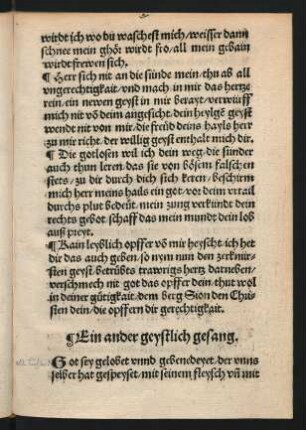 wirdt ich wo du waschest mich/weisser dann
schnee mein ghör wirdt fro/all mein gebain
wirdt frewen sich.
¶ Herr sich nit an die sünde mein/thu ab all
vngerechtigkait/vnd mach in mir das hertze
rein/ein newen geyst in mir berayt/verwürff
mich nit võ deim angesicht/dein heylgẽ geyst
wendt nit von mir/die freüd deins hayls herr
zu mir richt/der willig geyst enthalt mich dir.
¶ Die gotlosen wil ich dein weg/die sünder
auch thun leren/das sie von bösem falschen
stets/zu dir durch dich sich keren/beschirm
mich herr meins hails ein got/vor dem vrtail
durchs plut bedeüt/mein zung verkündt dein
rechts gebot/schaff das mein mundt dein lob
auß preyt.
¶ Kain leyblich opffer võ mir heyscht/ich het
dir das auch geben/so nym nun den zerknir-
sten geyst/betrübts trawrigs hertz darneben/
verschmech nit got das opffer dein/thut wol
in deiner gütigkait/dem berg Sion den Chri-
sten dein/die opffern dir gerechtigkait.
¶ Ein ander geystlich gesang.
Got sey gelobet vnnd gebenedeyet/der vnns
selber hat gespeyset/mit seinem fleysch vñ mit